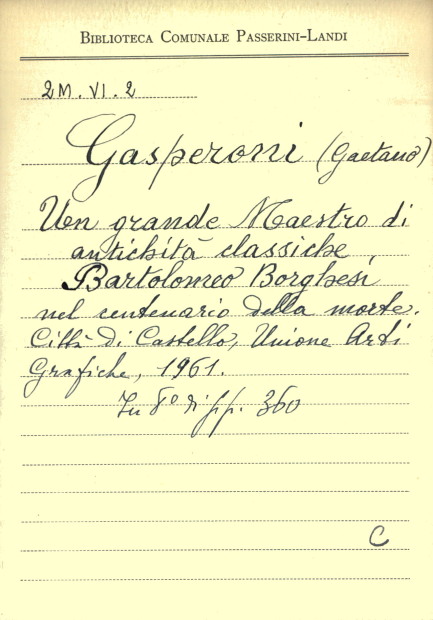 BIBLIOTECA COMUNALE PASSERINI-LANDI
2M.VI.2
Gasperoni (Gaetano)
Un grande Maestro di
antichità classiche
Bartolomeo Borghesi
nel centenario della morte.
Città di Castello, Unione Arti
Grafiche, 1961.
In 8° di pp. 360
C